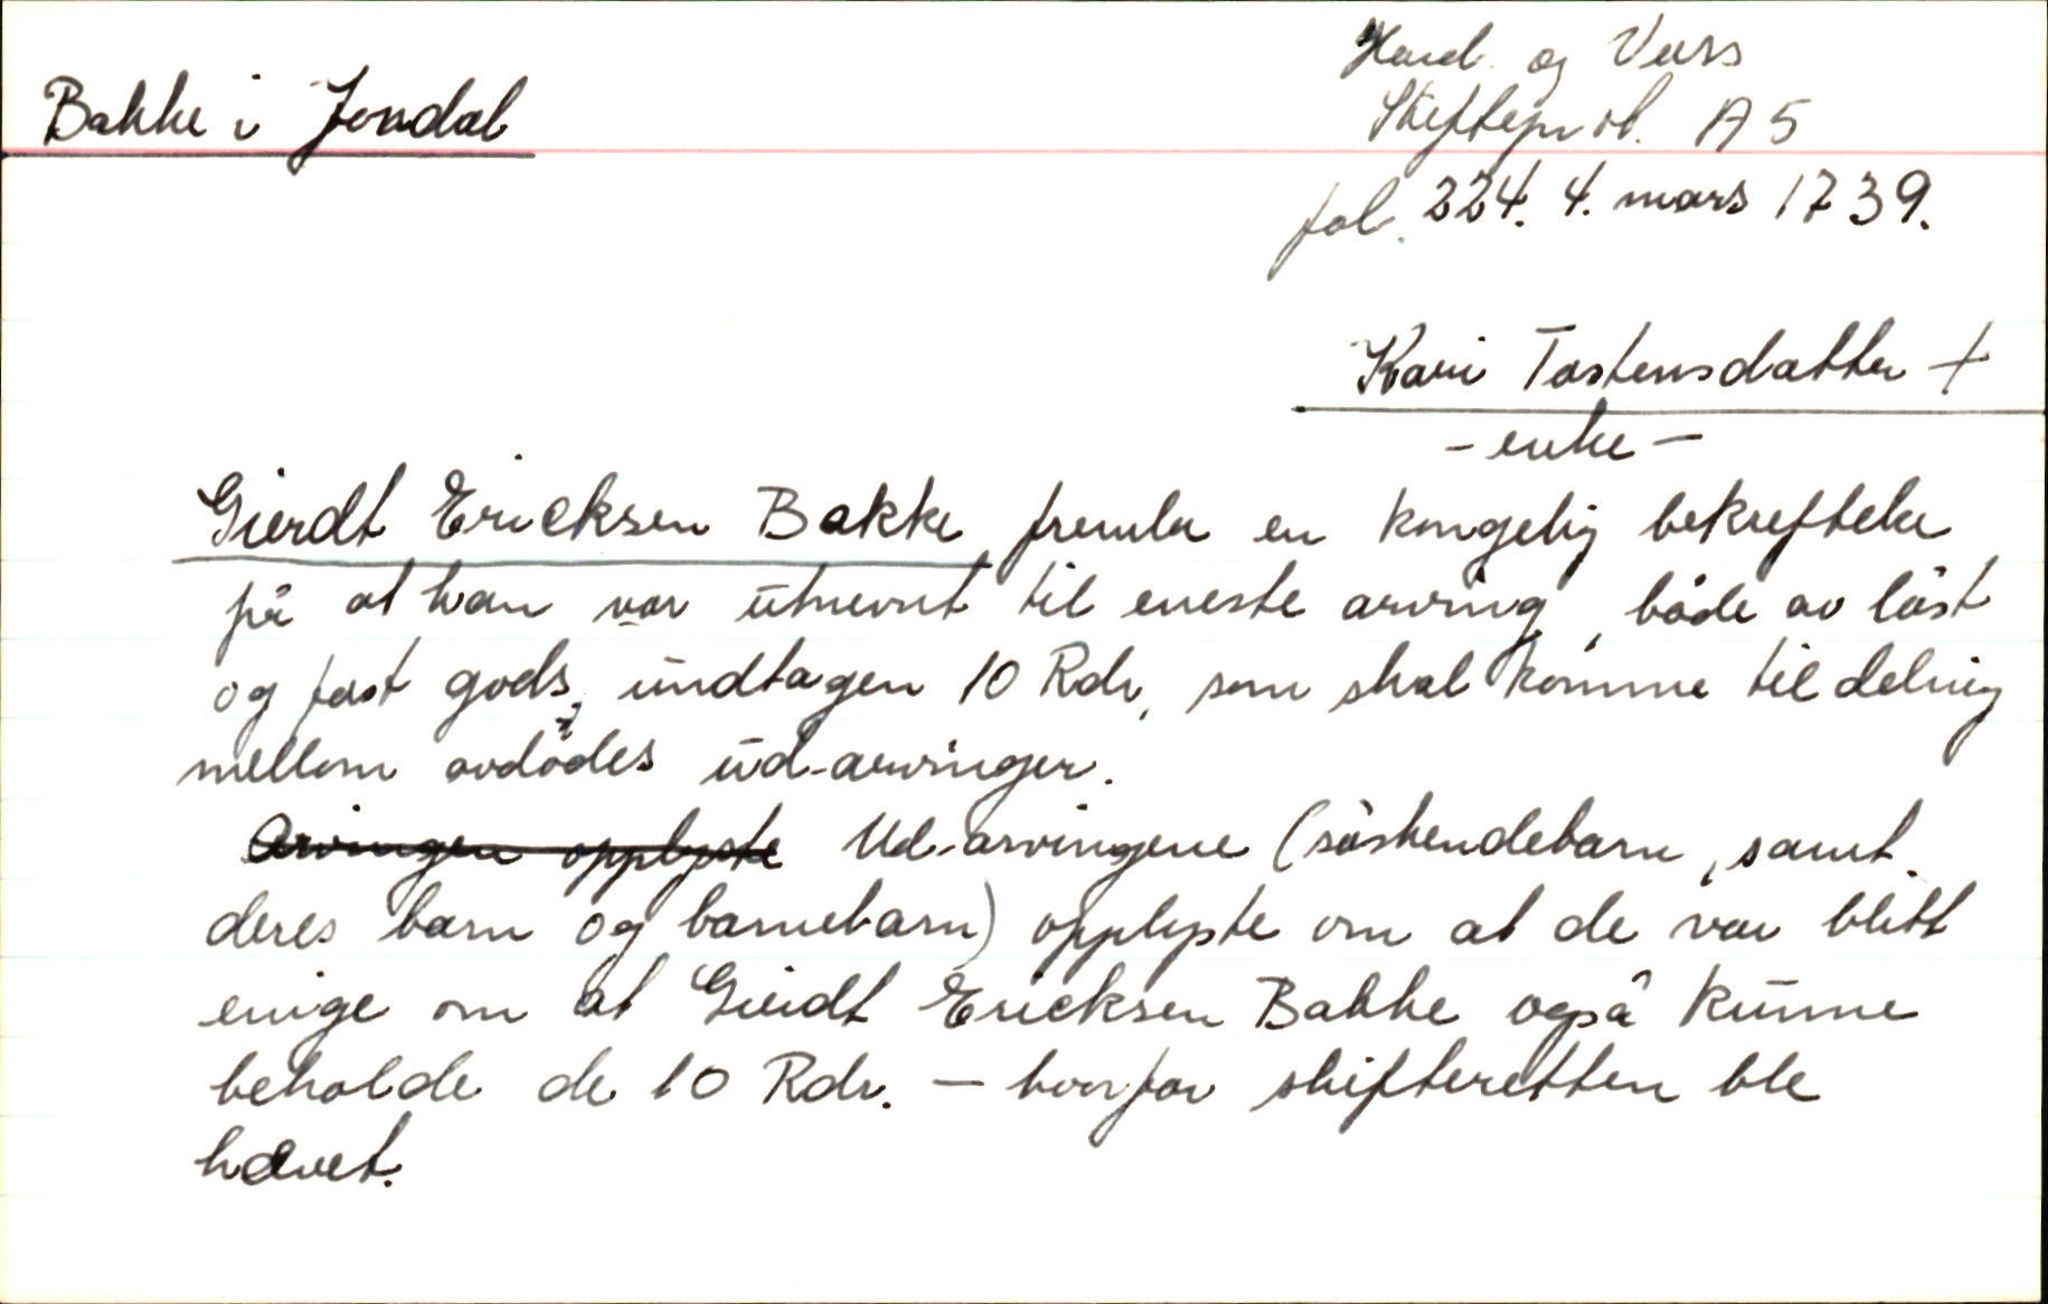 Hard. og Vass
Bakke i Jondal
Skifteprot. A 5
fol. 224. 4. mars 1739.
Kari Tostensdatter +
- enke -
Gierdt Ericksen Bakke fremla en kongelig bekreftelse
på at han var utnevnt til eneste arving, både av löst
og fast gods, undtagen 10 Rdr, som skal komme til deling
mellom avdödes ud-arvinger.
Arvingen opplyste Ud-arvingene (söskendebarn, samt
deres barn og barnebarn) opplyste om at de var blitt
enige om at Gierdt Ericksen Bakke også kunne
beholde de 10 Rdr. — hvorfor skifteretten ble
hævet.